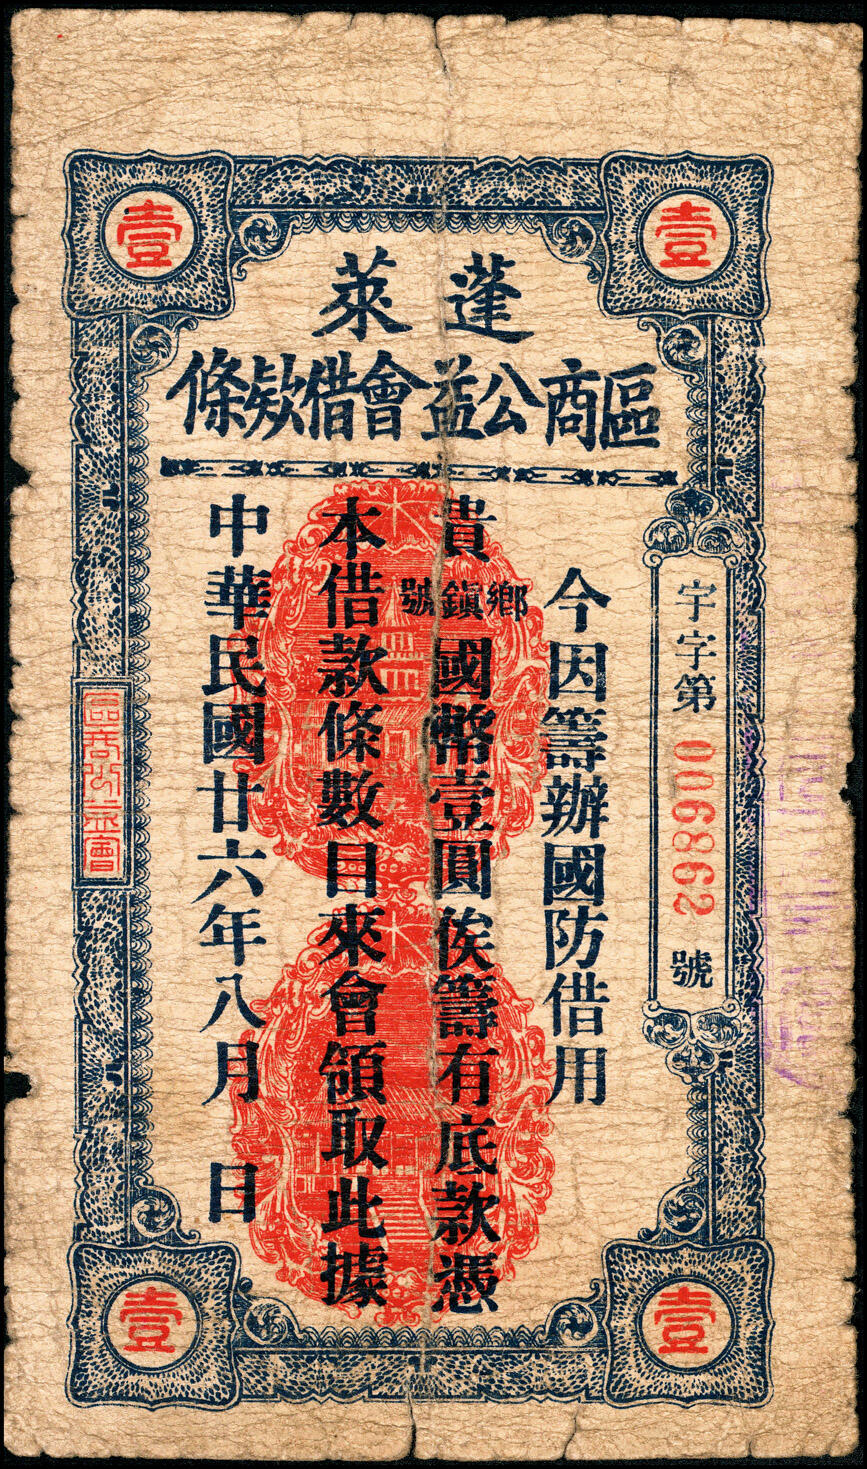 壹
壹
蓬萊
區商公益會借欵條
字字第006862號
今因籌辦國防借用
貴鄉鎮號國幣壹圓俟籌有底款憑
本借款條數目來會領取此據
中華民國廿六年八月 日
區商公益會
壹
壹